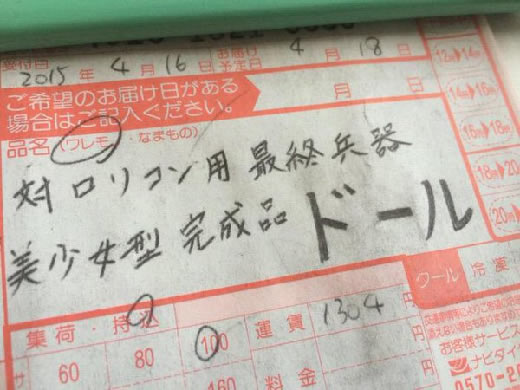 受付日 2015年 4月 16日 お届け予定日 4月 18日
ご希望のお届け日がある
場合はご記入ください。
月 日
品名(ワレモノ・なまもの)
対ロリコン用 最終兵器
美少女型 完成品 ドール
クール 冷凍
集荷・持込
運賃 1304 円
60 80 100
料金 円
お客様サービス
ナビダイ
0570-2
12時▶14時
14時▶16時
16時▶18時
18時▶20
20時▶